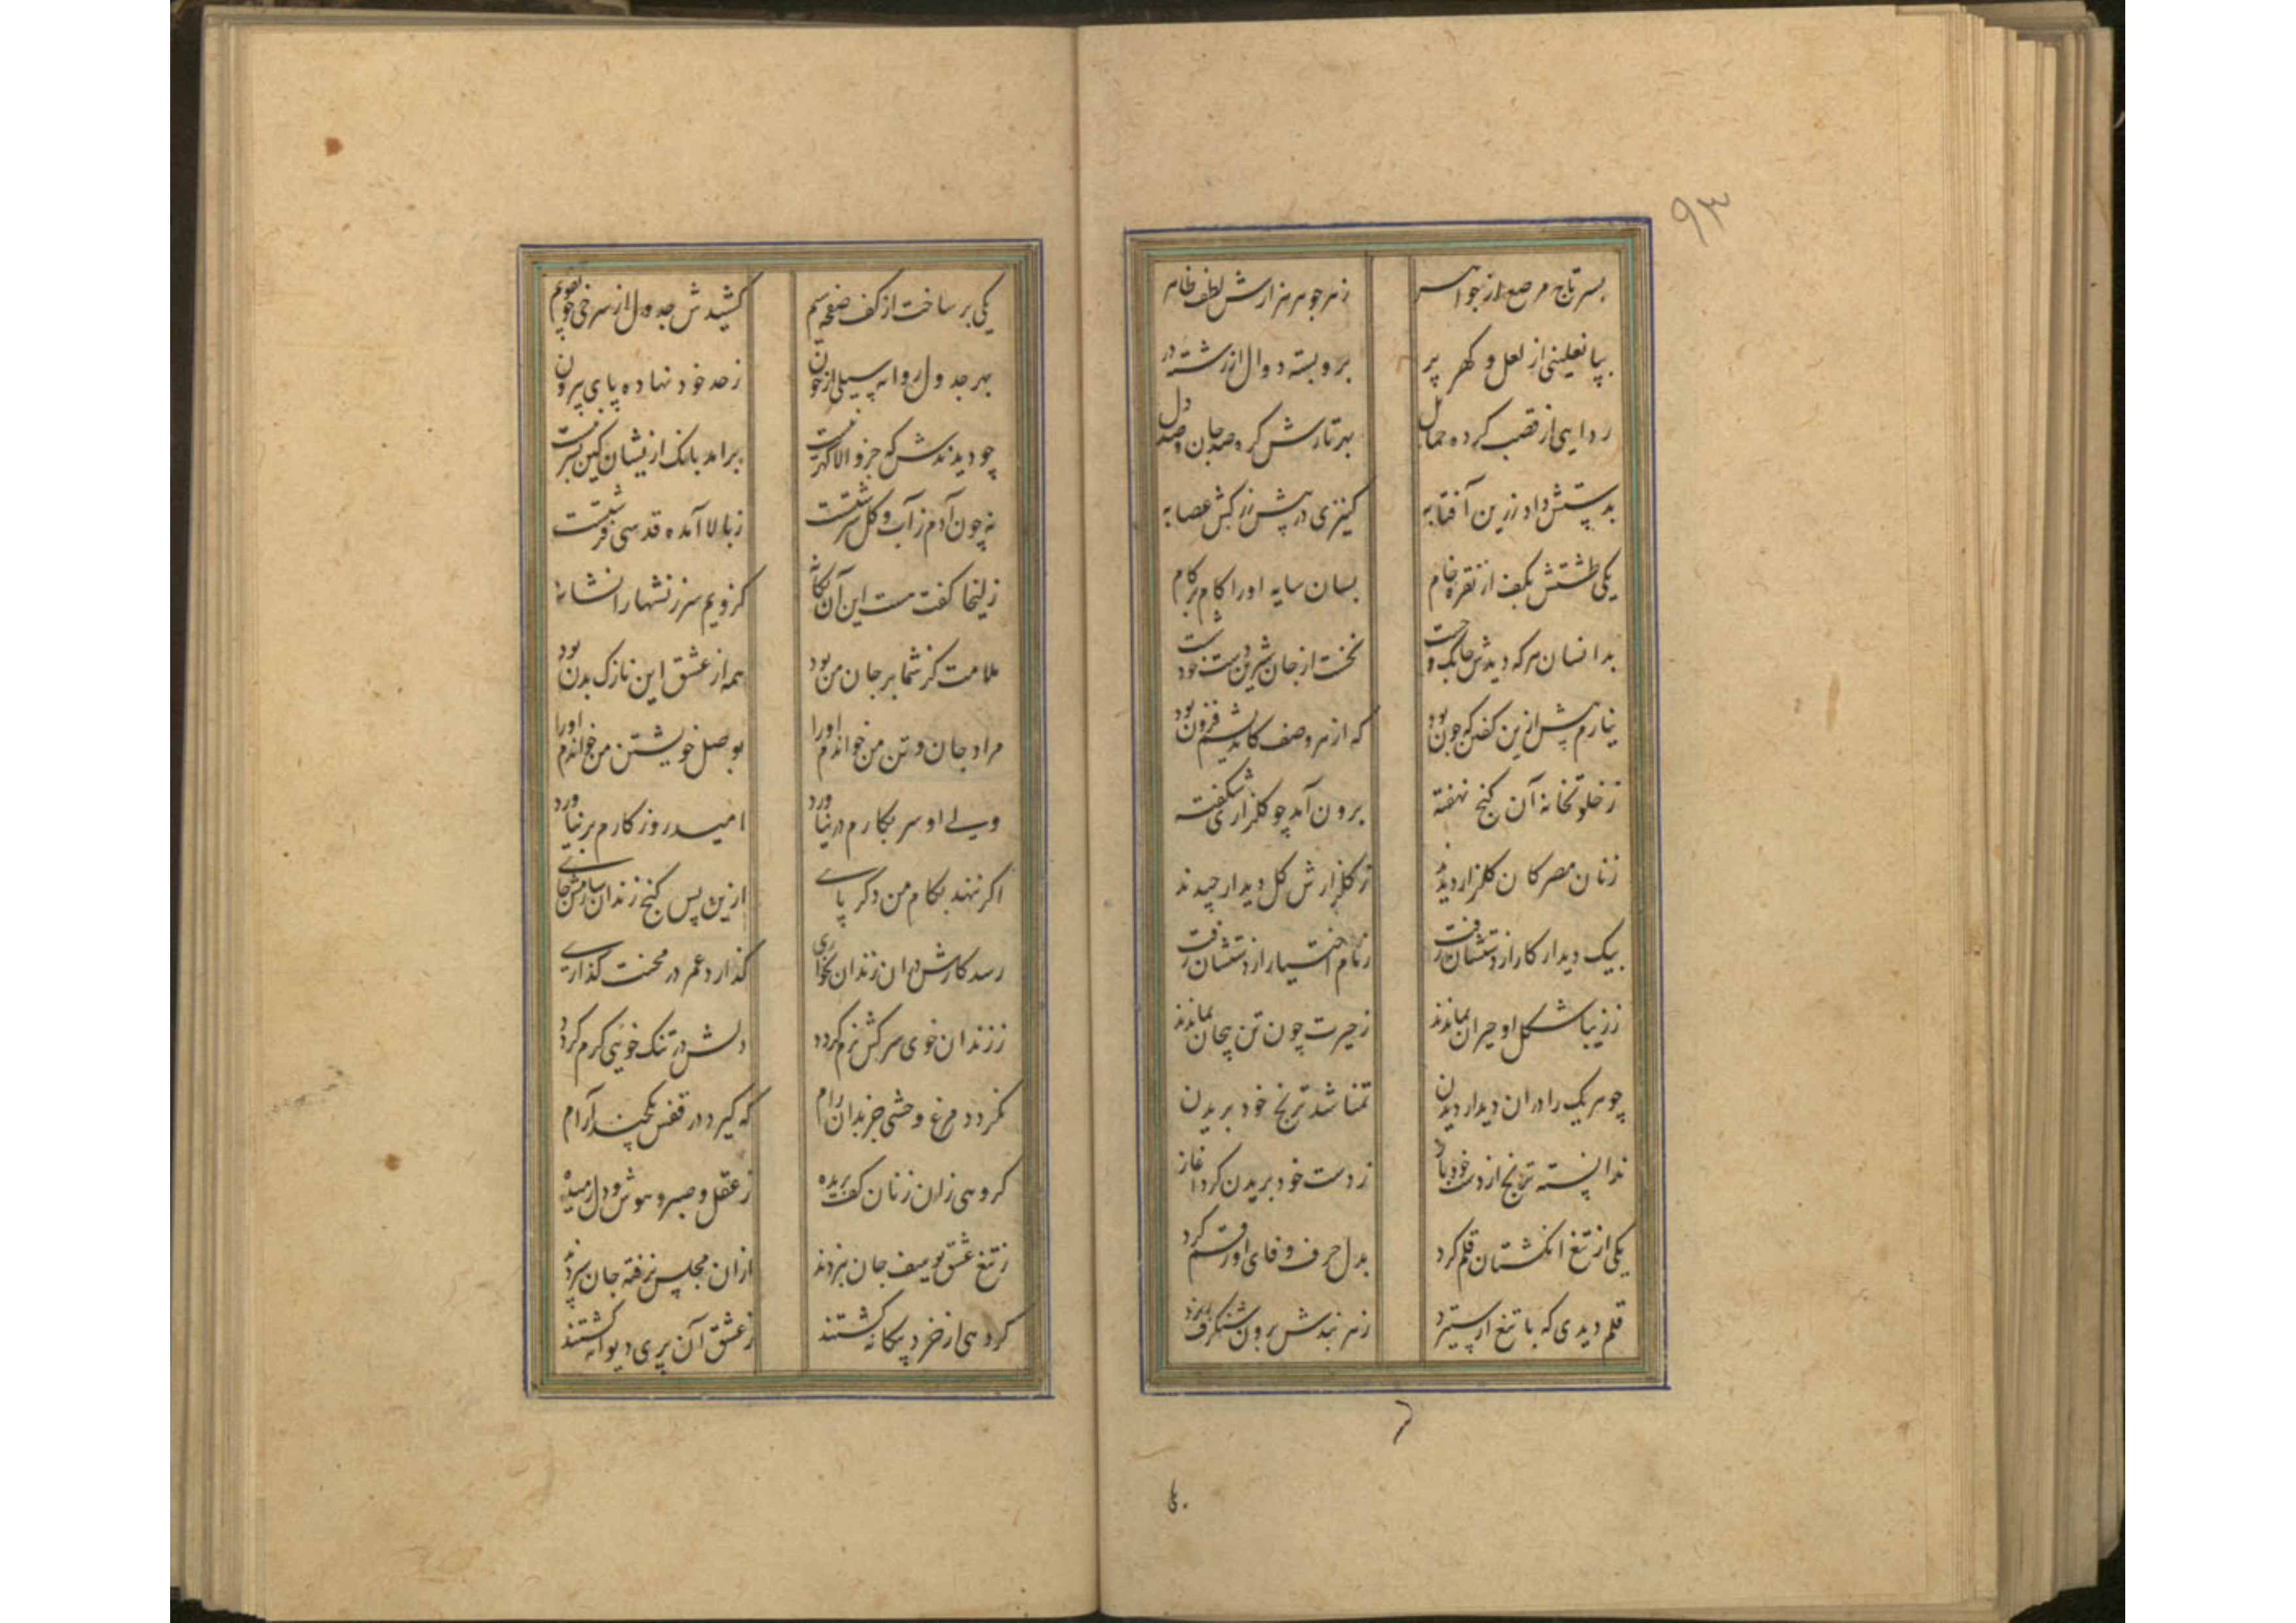 ۹۳
بسر تاج مرصع از جواهر
ز هر جوهر هزارش لطف ظاهر
بپا نعلینی از لعل و کهر پر
برو بسته دوال از رشته در
ردایی از قصب کرده حمایل
بهر تارش کره صد جان و صد دل
بدستش داد زرین آفتابه
کنیزی در پیش زرکش عصابه
یکی طشتش بکف از نقره خام
بسان سایه او را کام بر کام
بدانسان هر که دیدش چابک و چست
نخست از جان شیرین دست خود شست
نیارم بیش ازین کفتن که چون بود
که از هر وصف کاندیشم فزون بود
ز خلوتخانه آن کنج نهفته
برون آمد چو کلزاری شکفته
زنان مصر کان کلزار دیدند
ز کلزارش کل دیدار چیدند
بیک دیدار کار از دستشان رفت
زمام اختیار از دستشان رفت
ز زیبا شکل او حیران بماندند
ز حیرت چون تن بیجان بماندند
چو هر یک را دران دیدار دیدن
تمنا شد ترنج خود بریدن
ندانسته ترنج از دست خود باز
ز دست خود بریدن کرد آغاز
یکی از تیغ انکشتان قلم کرد
بدل حرف وفای او رقم کرد
قلم دیدی که با تیغ ار ستیزد
ز هر بندش برون شنکرف ریزد
یکی بر ساخت از کف صفحه سیم
کشیدش جدول از سرخی چو تقویم
بهر جدول روانه سیلی از خون
ز حد خود نهاده پای بیرون
چو دیدندش که جز والا کهر نیست
برامد بانک ازیشان کین بشر نیست
نه چون آدم ز آب و کل سرشتست
ز بالا آمده قدسی فرشتست
زلیخا کفت هست این آن یکانه
کزویم سرزنشها را نشانه
ملامت کز شما بر جان من بود
همه از عشق این نازک بدن بود
مراد جان و تن من خواندم او را
بوصل خویشتن من خواندم او را
ولی او سر بکارم در نیاورد
امید روزکارم بر نیاورد
اکر ننهد بکام من دکر پای
ازین پس کنج زندان سازمش جای
رسد کارش دران زندان بخواری
کذارد عمر در محنت کذاری
ز زندان خوی سرکش نرم کردد
دلش در تنک خویی کرم کردد
نکردد مرغ وحشی جز بدان رام
که کیرد در قفس یکچند آرام
کروهی زان زنان کف بریده
ز عقل و صبر و هوش و دل رمیده
ز تیغ عشق یوسف جان نبردند
ازان مجلس نرفته جان سپردند
کروهی از خرد بیکانه کشتند
ز عشق آن پری دیوانه کشتند